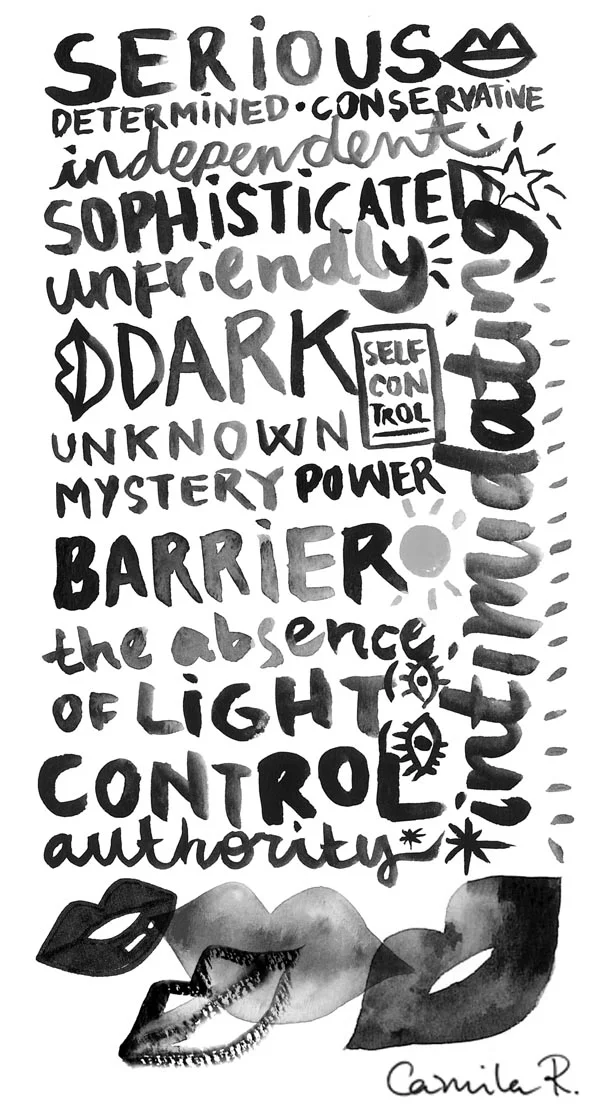 SERiOUS
DETERMINED • CONSERVATIVE
independent
SOPHiSTiCATED
unfriendly
DARK
SELF
CON
TROL
UNKNOWN
MYSTERY POWER
BARRiER
the absence
OF LiGHT
CONTROL
authority
intimidating
Camila R.